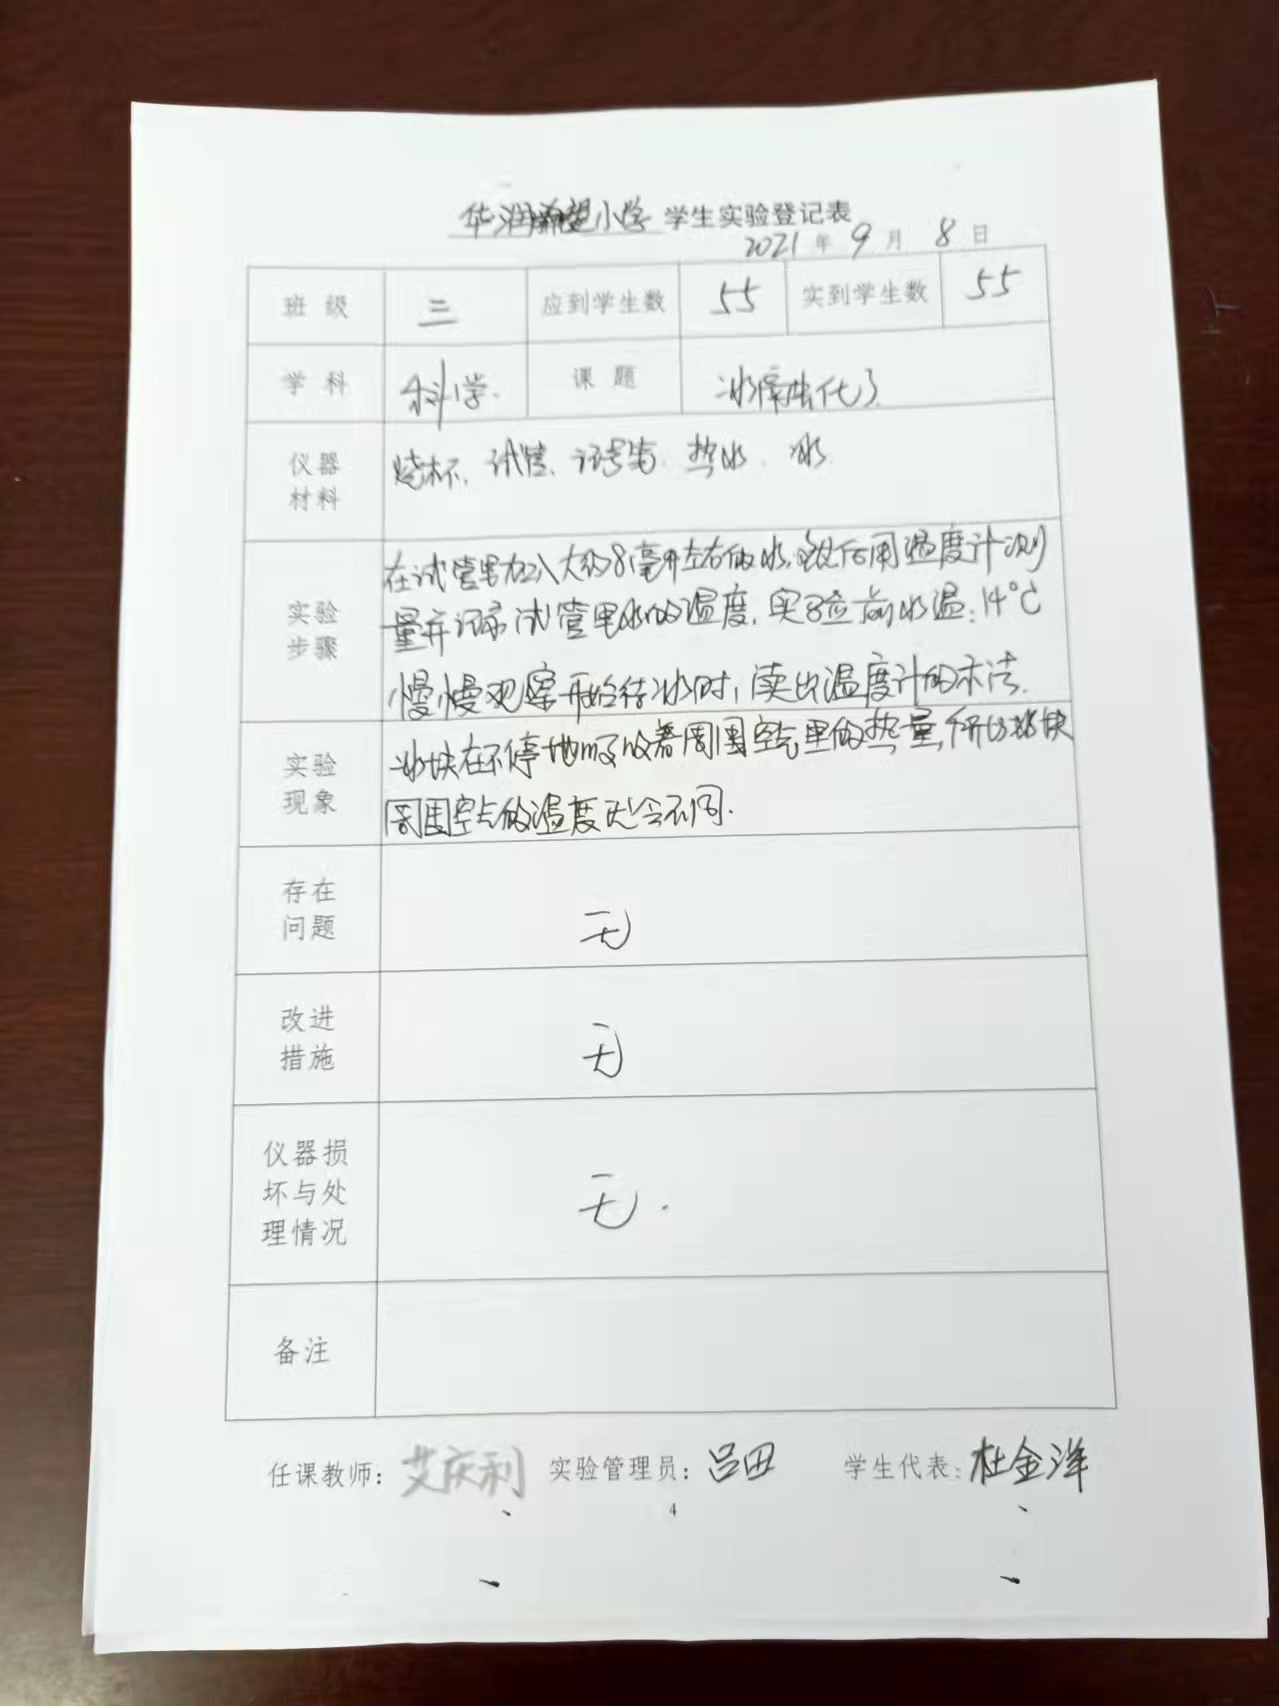 华润希望小学 学生实验登记表
2021 年 9 月 8 日
班级 三 应到学生数 55 实到学生数 55
学科 科学. 课题 冰融化了
仪器材料 烧杯、试管、记号笔、热水、冰
实验步骤 在试管里加入大约8毫升左右的水,然后用温度计测
量并记录试管里水的温度,实验前水温:14℃
慢慢观察开始结冰时,读出温度计的示法.
实验现象 冰块在不停地吸收着周围空气里的热量,所以冰块
周围空气的温度就会不同.
存在问题 无
改进措施 无
仪器损坏与处理情况 无.
备注
任课教师: 艾庆利 实验管理员: 吕田 学生代表: 杜金洋
4